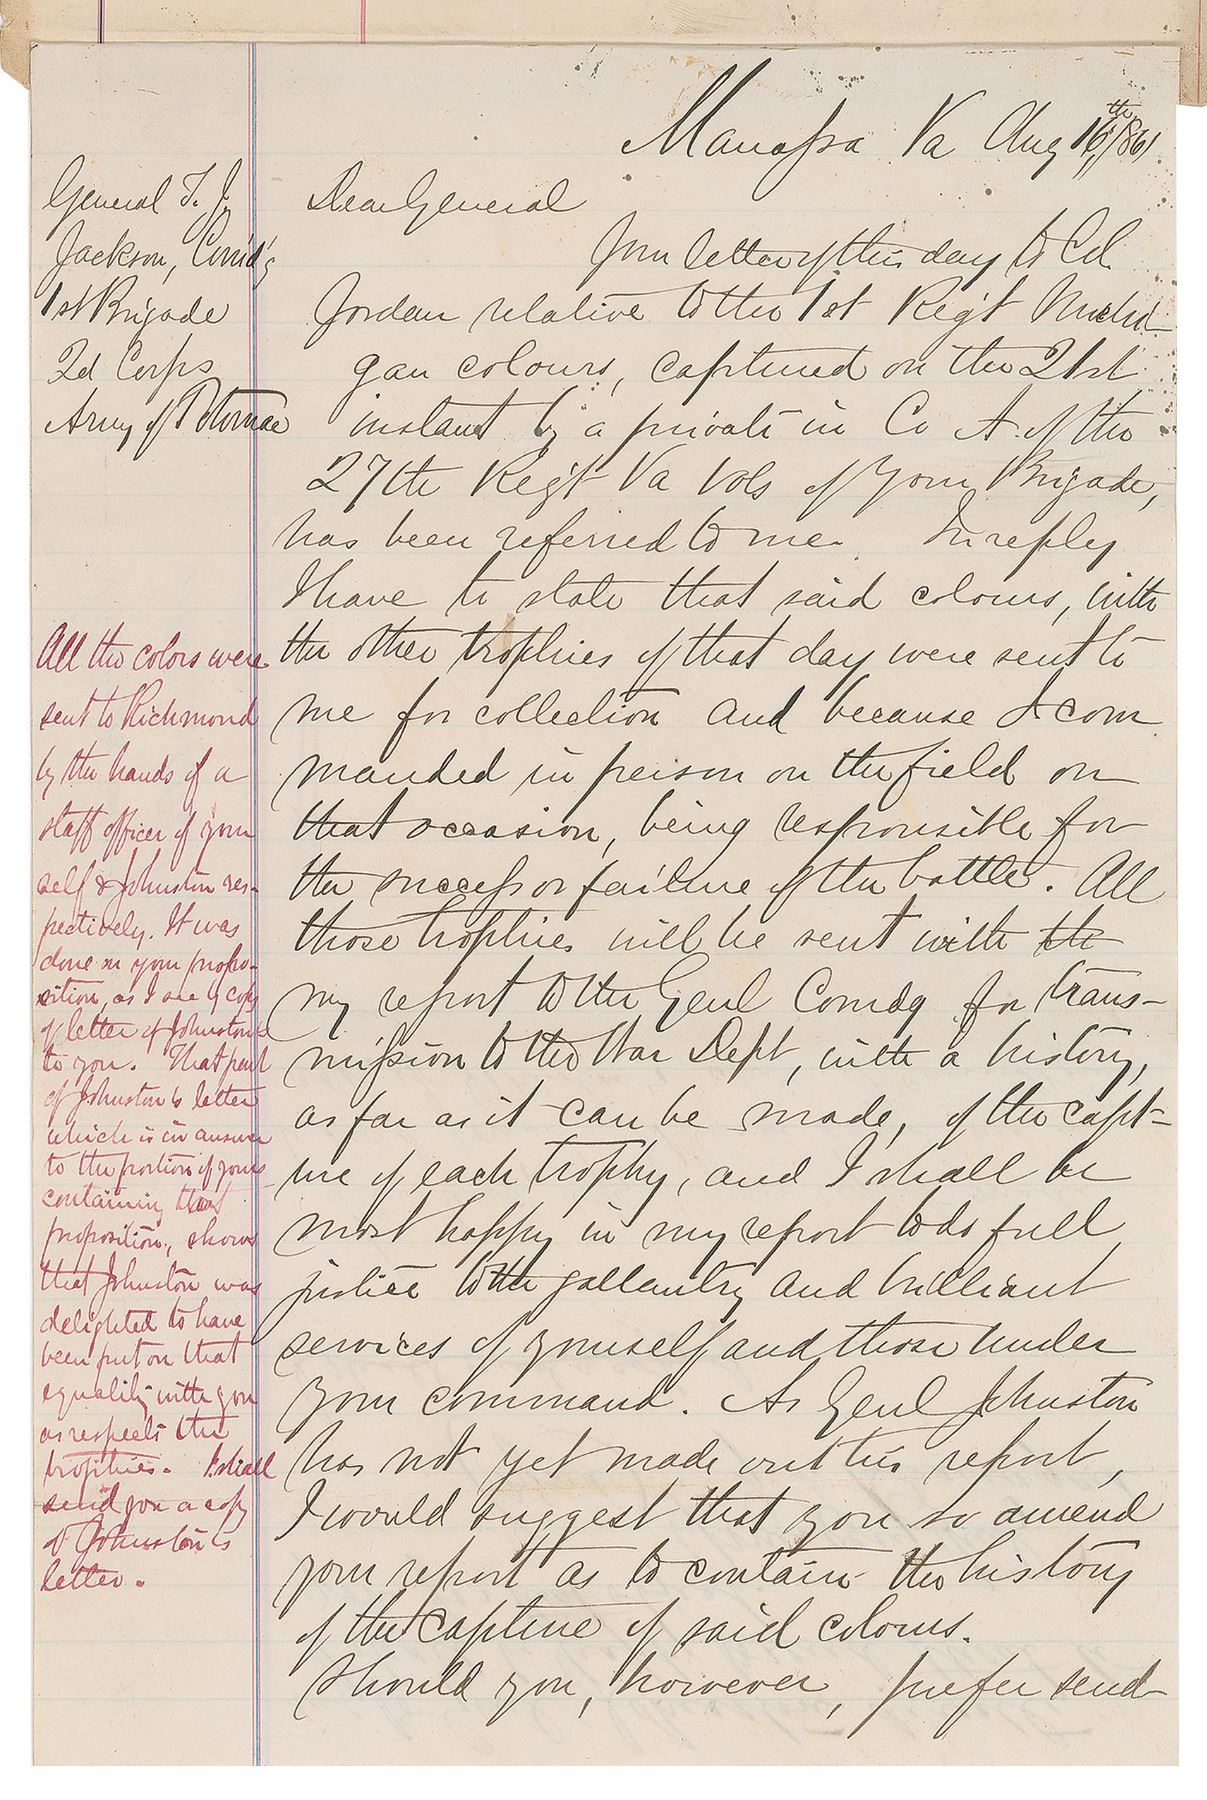 Manassa Va Aug 16th/861
General T. J.
Jackson, Comd'g
1st Brigade
2d Corps
Army of Potomac
Dear General
Your letter of this day to Col.
Jordan relative to the 1st Regt Michi-
gan colours, captured on the 21st
instant by a private in Co A. of the
27th Regt Va Vols of your Brigade,
has been referred to me. In reply
I have to state that said colours, with
the other trophies of that day were sent to
me for collection and because I com
manded in person on the field on
that occasion, being responsible for
the success or failure of the battle. All
those trophies will be sent with the
my report to the Genl Comdg for trans-
mission to the War Dept, with a history,
as far as it can be made, of the capt-
ure of each trophy, and I shall be
most happy in my report to do full
justice to the gallantry and brilliant
services of yourself and those under
your command. As Genl Johnston
has not yet made out his report,
I would suggest that you so amend
your report as to contain the history
of the capture of said colours.
Should you, however, prefer send-
All the colors were
sent to Richmond
by the hands of a
staff officer of your
self & Johnston res-
pectively. It was
done on your propo-
sition, as I see by copy
of letter of Johnston
to you. That part
of Johnston's letter
which is in answer
to the portion of yours
containing that
proposition, shows
that Johnston was
delighted to have
been put on that
equality with you
as respects the
trophies. I shall
send you a copy
of Johnston's
letter.